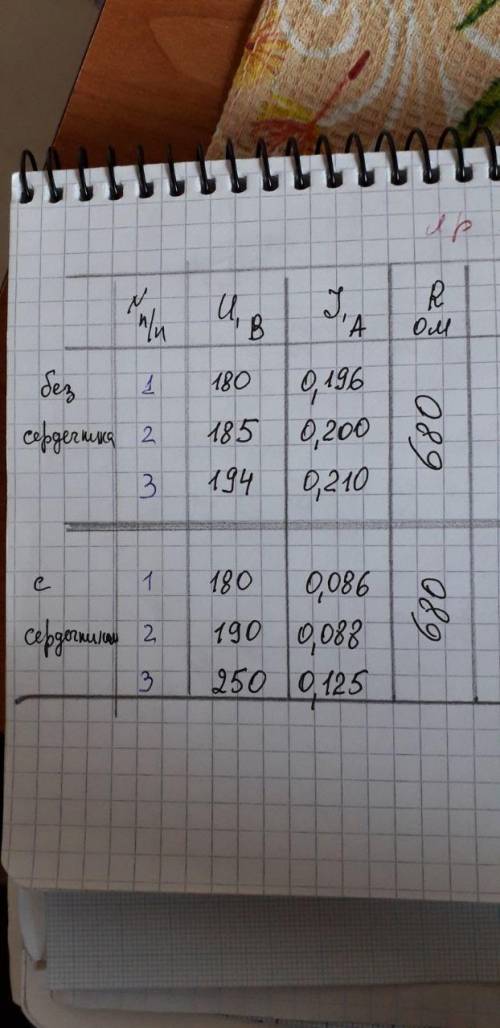 лр
N п/п U, В J, А R ом
без 1 180 0,196 680
сердечника 2 185 0,200
3 194 0,210
с 1 180 0,086 680
сердечником 2 190 0,088
3 250 0,125